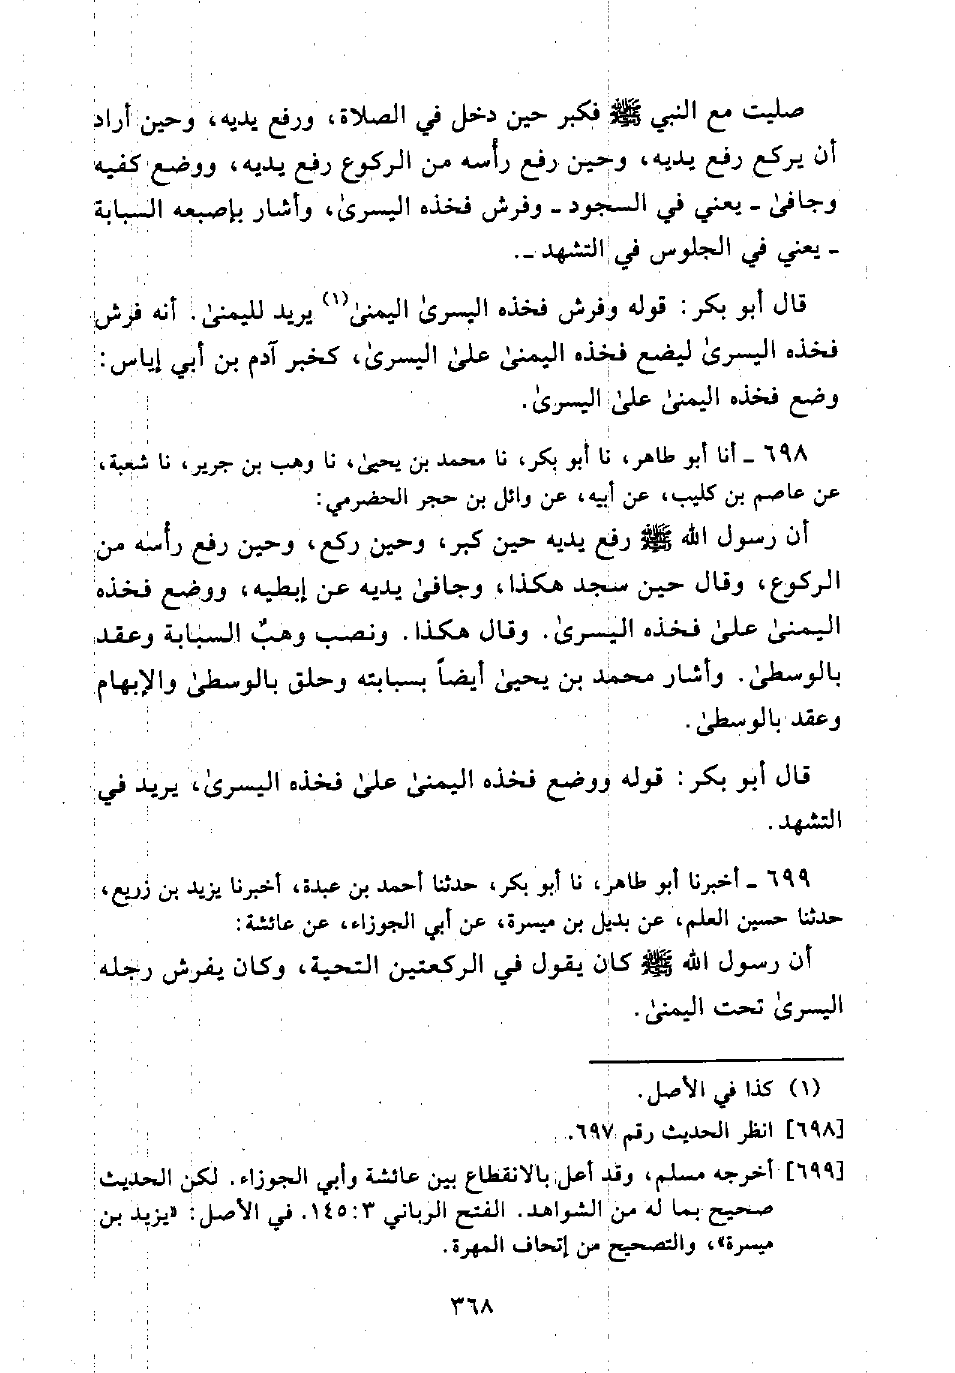 صليت مع النبي ﷺ فكبر حين دخل في الصلاة، ورفع يديه، وحين أراد
أن يركع رفع يديه، وحين رفع رأسه من الركوع رفع يديه، ووضع كفيه
وجافىٰ ـ يعني في السجود ـ وفرش فخذه اليسرىٰ، وأشار بإصبعه السبابة
ـ يعني في الجلوس في التشهد ـ.
قال أبو بكر: قوله وفرش فخذه اليسرىٰ اليمنىٰ(١) يريد لليمنىٰ. أنه فرش
فخذه اليسرىٰ ليضع فخذه اليمنىٰ علىٰ اليسرىٰ، كخبر آدم بن أبي إياس:
وضع فخذه اليمنىٰ علىٰ اليسرىٰ.
٦٩٨ ـ أنا أبو طاهر، نا أبو بكر، نا محمد بن يحيىٰ، نا وهب بن جرير، نا شعبة،
عن عاصم بن كليب، عن أبيه، عن وائل بن حجر الحضرمي:
أن رسول الله ﷺ رفع يديه حين كبر، وحين ركع، وحين رفع رأسه من
الركوع، وقال حين سجد هكذا، وجافىٰ يديه عن إبطيه، ووضع فخذه
اليمنىٰ علىٰ فخذه اليسرىٰ. وقال هكذا. ونصب وهبٌ السبابة وعقد
بالوسطىٰ. وأشار محمد بن يحيىٰ أيضاً بسبابته وحلق بالوسطىٰ والإبهام
وعقد بالوسطىٰ.
قال أبو بكر: قوله ووضع فخذه اليمنىٰ علىٰ فخذه اليسرىٰ، يريد في
التشهد.
٦٩٩ ـ أخبرنا أبو طاهر، نا أبو بكر، حدثنا أحمد بن عبدة، أخبرنا يزيد بن زريع،
حدثنا حسين العلم، عن بديل بن ميسرة، عن أبي الجوزاء، عن عائشة:
أن رسول الله ﷺ كان يقول في الركعتين التحية، وكان يفرش رجله
اليسرىٰ تحت اليمنىٰ.
(١) كذا في الأصل.
[٦٩٨] انظر الحديث رقم ٦٩٧.
[٦٩٩] أخرجه مسلم، وقد أعل بالانقطاع بين عائشة وأبي الجوزاء. لكن الحديث
صحيح بما له من الشواهد. الفتح الرباني ٣: ١٤٥. في الأصل: «يزيد بن
ميسرة»، والتصحيح من إتحاف المهرة.
٣٦٨